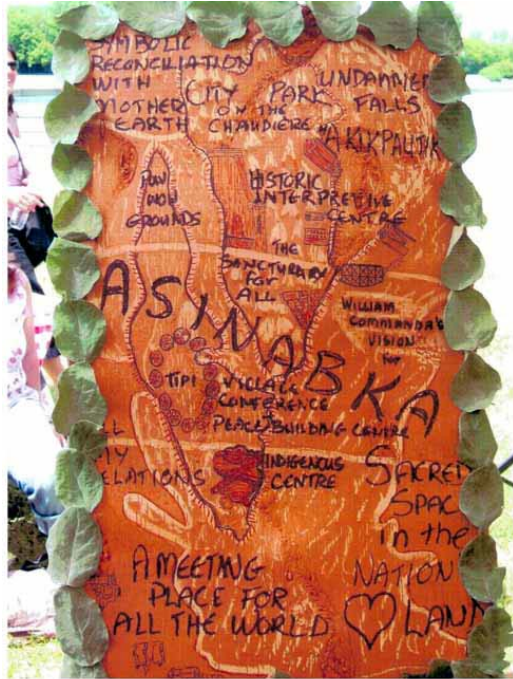 SYMBOLIC
RECONCILIATION
WITH
MOTHER
EARTH
CITY PARK
ON THE
CHAUDIÈRE
UNDAMMED
FALLS
POW
WOW
GROUNDS
HISTORIC
INTERPRETIVE
CENTRE
THE
SANCTURARY
FOR
ALL
ASINABKA
WILLIAM
COMMANDA'S
VISION
for
TIPI VILLAGE
CONFERENCE
PEACE BUILDING CENTRE
INDIGENOUS
CENTRE
SACRED
SPAC
in the
NATION
LAND
A MEETING
PLACE FOR
ALL THE WORLD